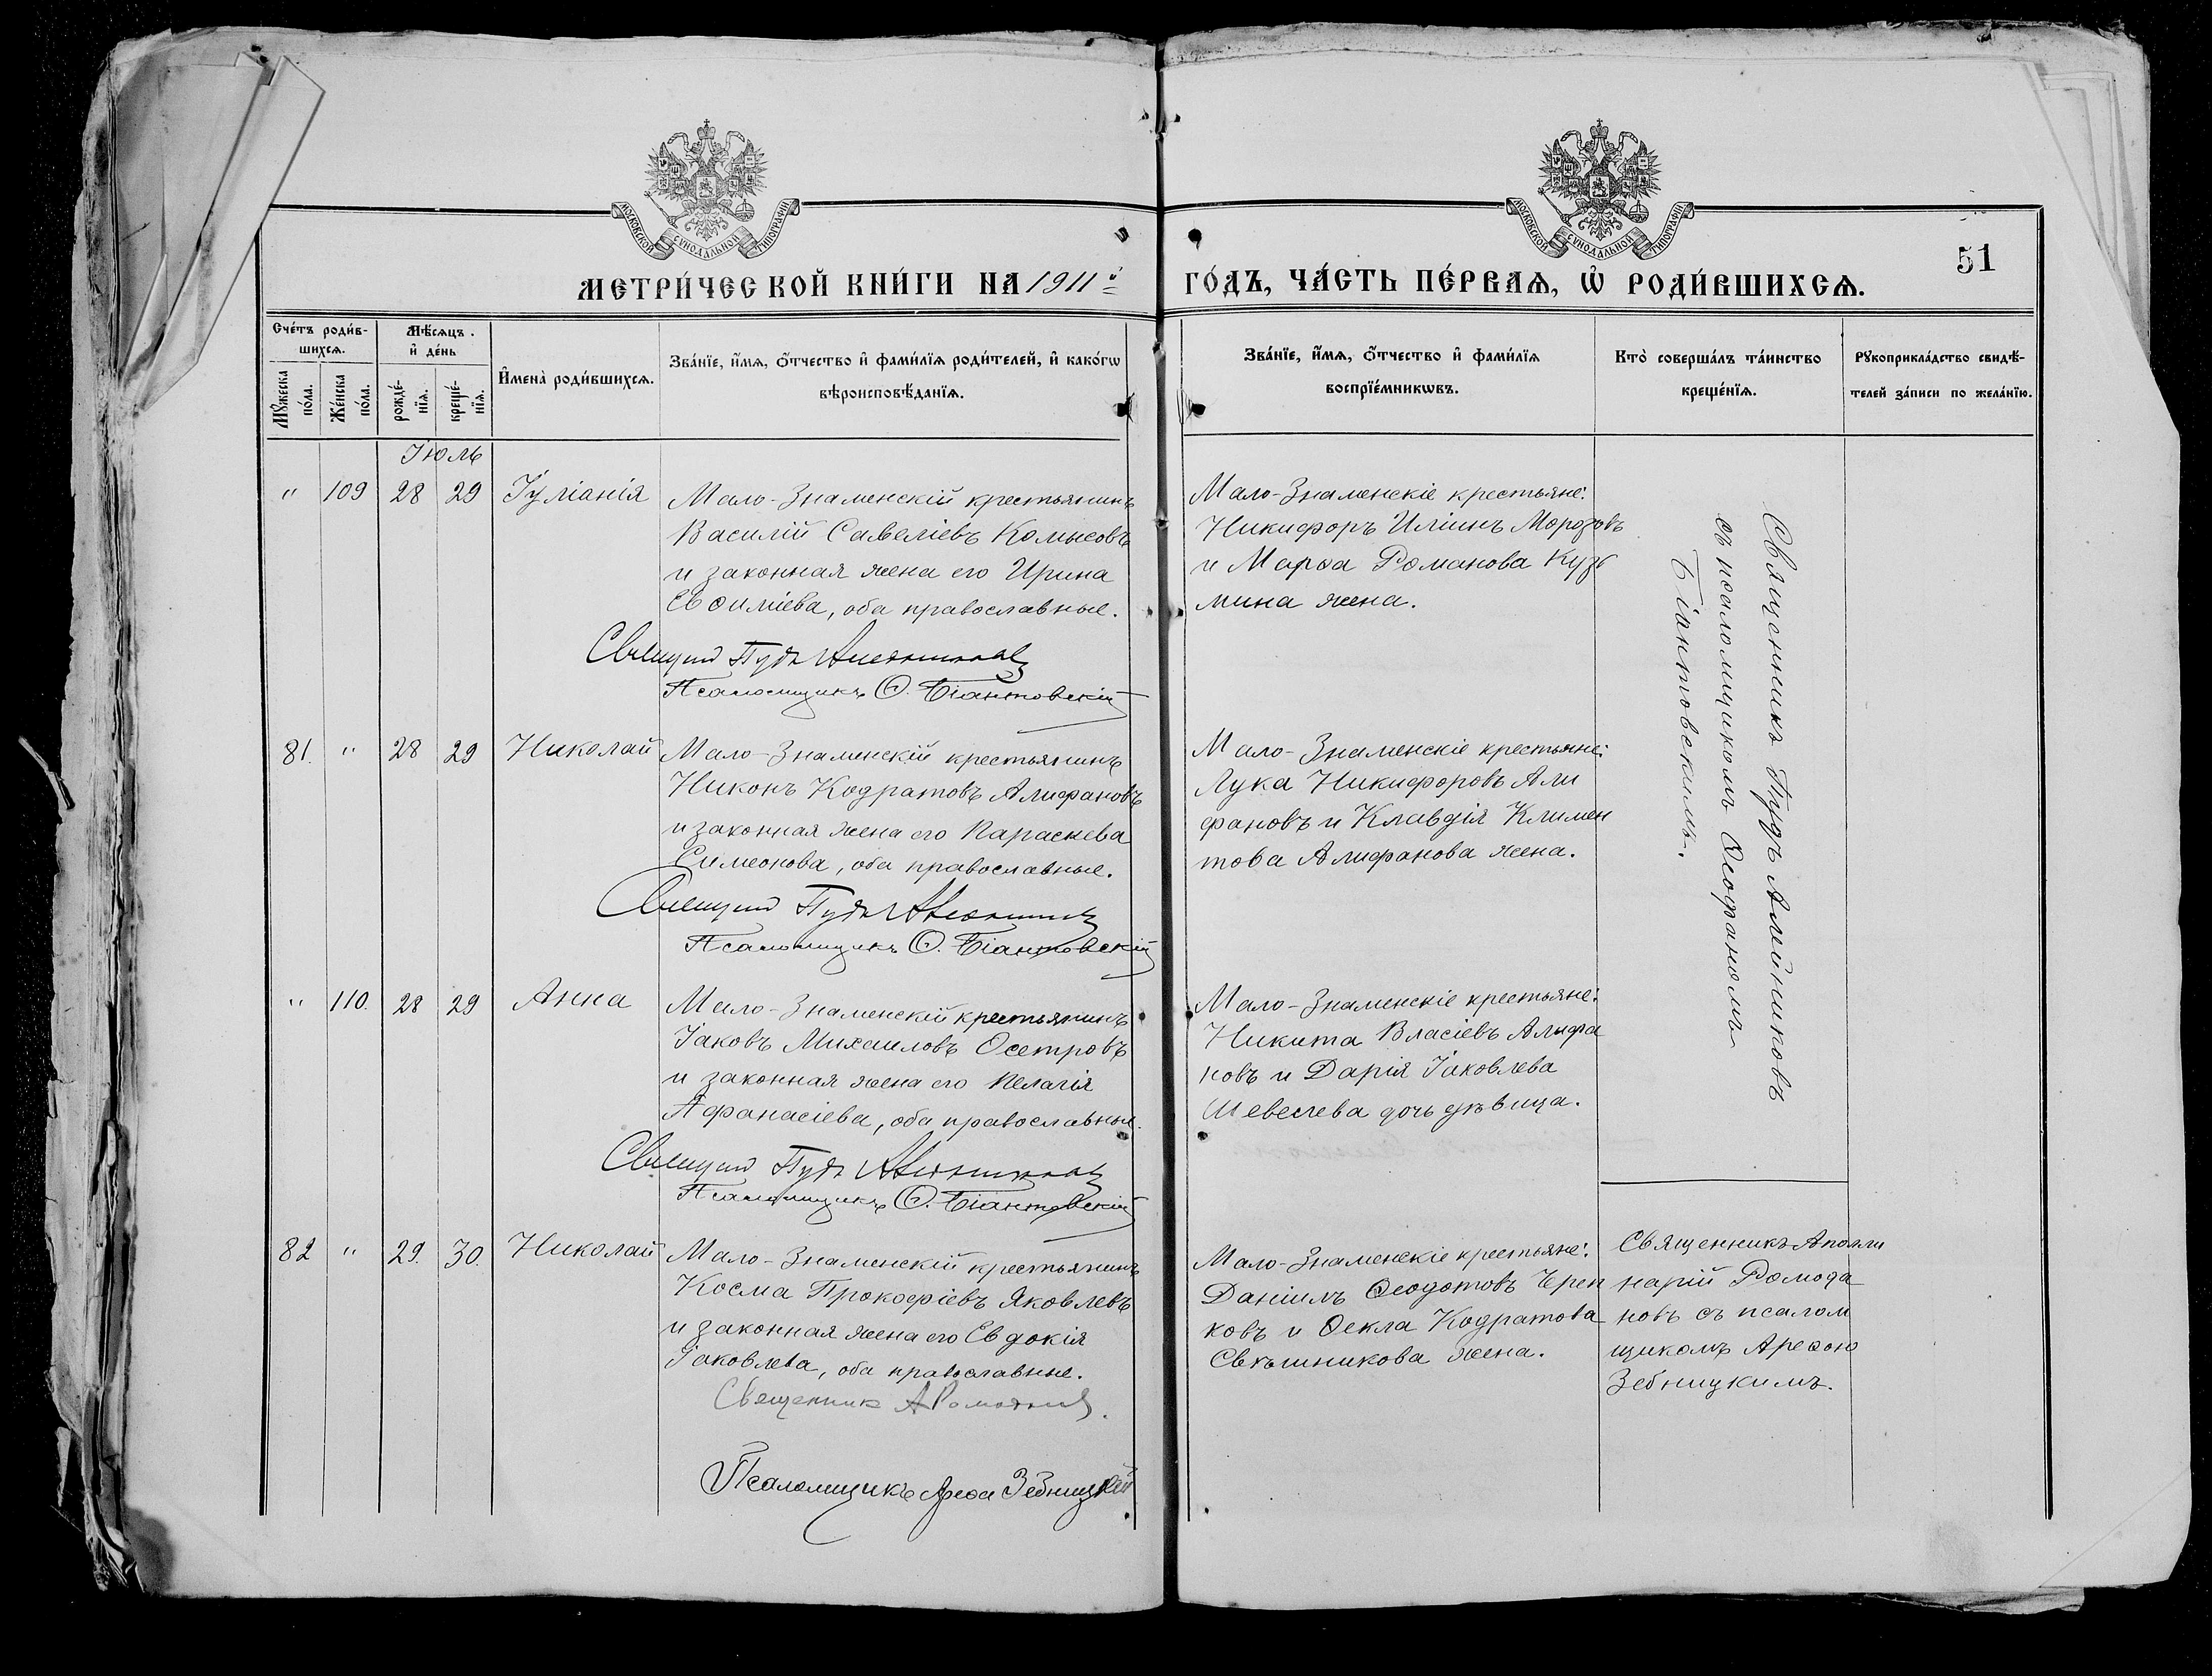 МОСКОВСКОЙ СѴНОДАЛЬНОЙ ТИПОГРАФІИ
МОСКОВСКОЙ СѴНОДАЛЬНОЙ ТИПОГРАФІИ
51
МЕТРИ́ЧЕСКОЙ КНИ́ГИ НА 1911й ГО́ДЪ, ЧА́СТЬ ПЕ́РВАѦ, Ѡ҆ РОДИ́ВШИХСѦ.
Сче́тъ роди́в-
шихсѧ.
Мꙋ́жеска по́ла.
Же́нска по́ла.
Мѣ́сѧцъ
и҆ де́нь
рожде́-нїѧ.
креще́-нїѧ.
И҆мена̀ роди́вшихсѧ.
Зва́нїе, и҆́мѧ, ѻ҆́тчество и҆ фами́лїѧ роди́телей, и҆ како́гѡ
вѣроисповѣ́данїѧ.
Зва́нїе, и҆́мѧ, ѻ҆́тчество и҆ фами́лїѧ
воспрїе́мникѡвъ.
Кто̀ соверша́лъ та́инство
креще́нїѧ.
Рꙋкоприкла́дство свидѣ́-
телей за́писи по жела́нїю.
Іюль
" 109 28 29 Іуліанія
Мало-Знаменскій крестьянинъ
Василій Савеліевъ Комысовъ
и законная жена его Ирина
Евѳиміева, оба православные.
Псаломщикъ Ѳ. Біантовскій
Мало-Знаменскіе крестьяне:
Никифоръ Иліинъ Морозовъ
и Марѳа Романова Кузь
мина жена.
Священникъ Пудъ Алейниковъ
съ псаломщикомъ Ѳеофаномъ
Біантовскимъ.
81. " 28 29 Николай
Мало-Знаменскій крестьянинъ
Никонъ Кодратовъ Алифановъ
и законная жена его Параскева
Симеонова, оба православные.
Псаломщикъ Ѳ. Біантовскій
Мало-Знаменскіе крестьяне:
Лука Никифоровъ Али
фановъ и Клавдія Климен
това Алифанова жена.
" 110. 28 29 Анна
Мало-Знаменскій крестьянинъ
Іаковъ Михаиловъ Осетровъ
и законная жена его Пелагія
Афанасіева, оба православные.
Псаломщикъ Ѳ. Біантовскій
Мало-Знаменскіе крестьяне:
Никита Власіевъ Алифа
новъ и Дарія Іаковлева
Шевелева дочь дѣвица.
82 " 29. 30. Николай
Мало-Знаменскій крестьянинъ
Косма Прокофіевъ Яковлевъ
и законная жена его Евдокія
Іаковлева, оба православные.
Священник А Ромоданов.
Псаломщикъ Арефа Зебницкій
Мало-Знаменскіе крестьяне:
Даніилъ Ѳеодотовъ Череп
ковъ и Ѳекла Кодратова
Свѣшникова жена.
Священникъ Аполли
нарій Ромода
новъ съ псалом
щикомъ Арефою
Зебницкимъ.